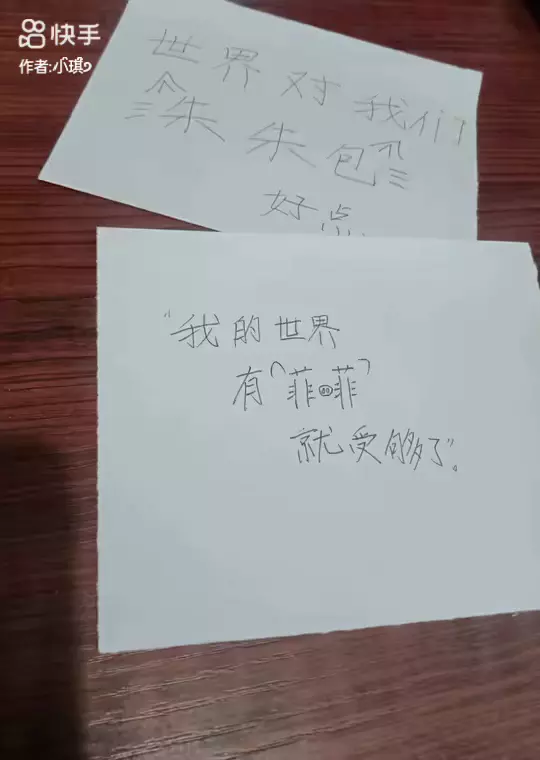 快手
作者:小琪
世界对我们
朱朱包
好点
"我的世界
有"菲菲"
就受够了"。